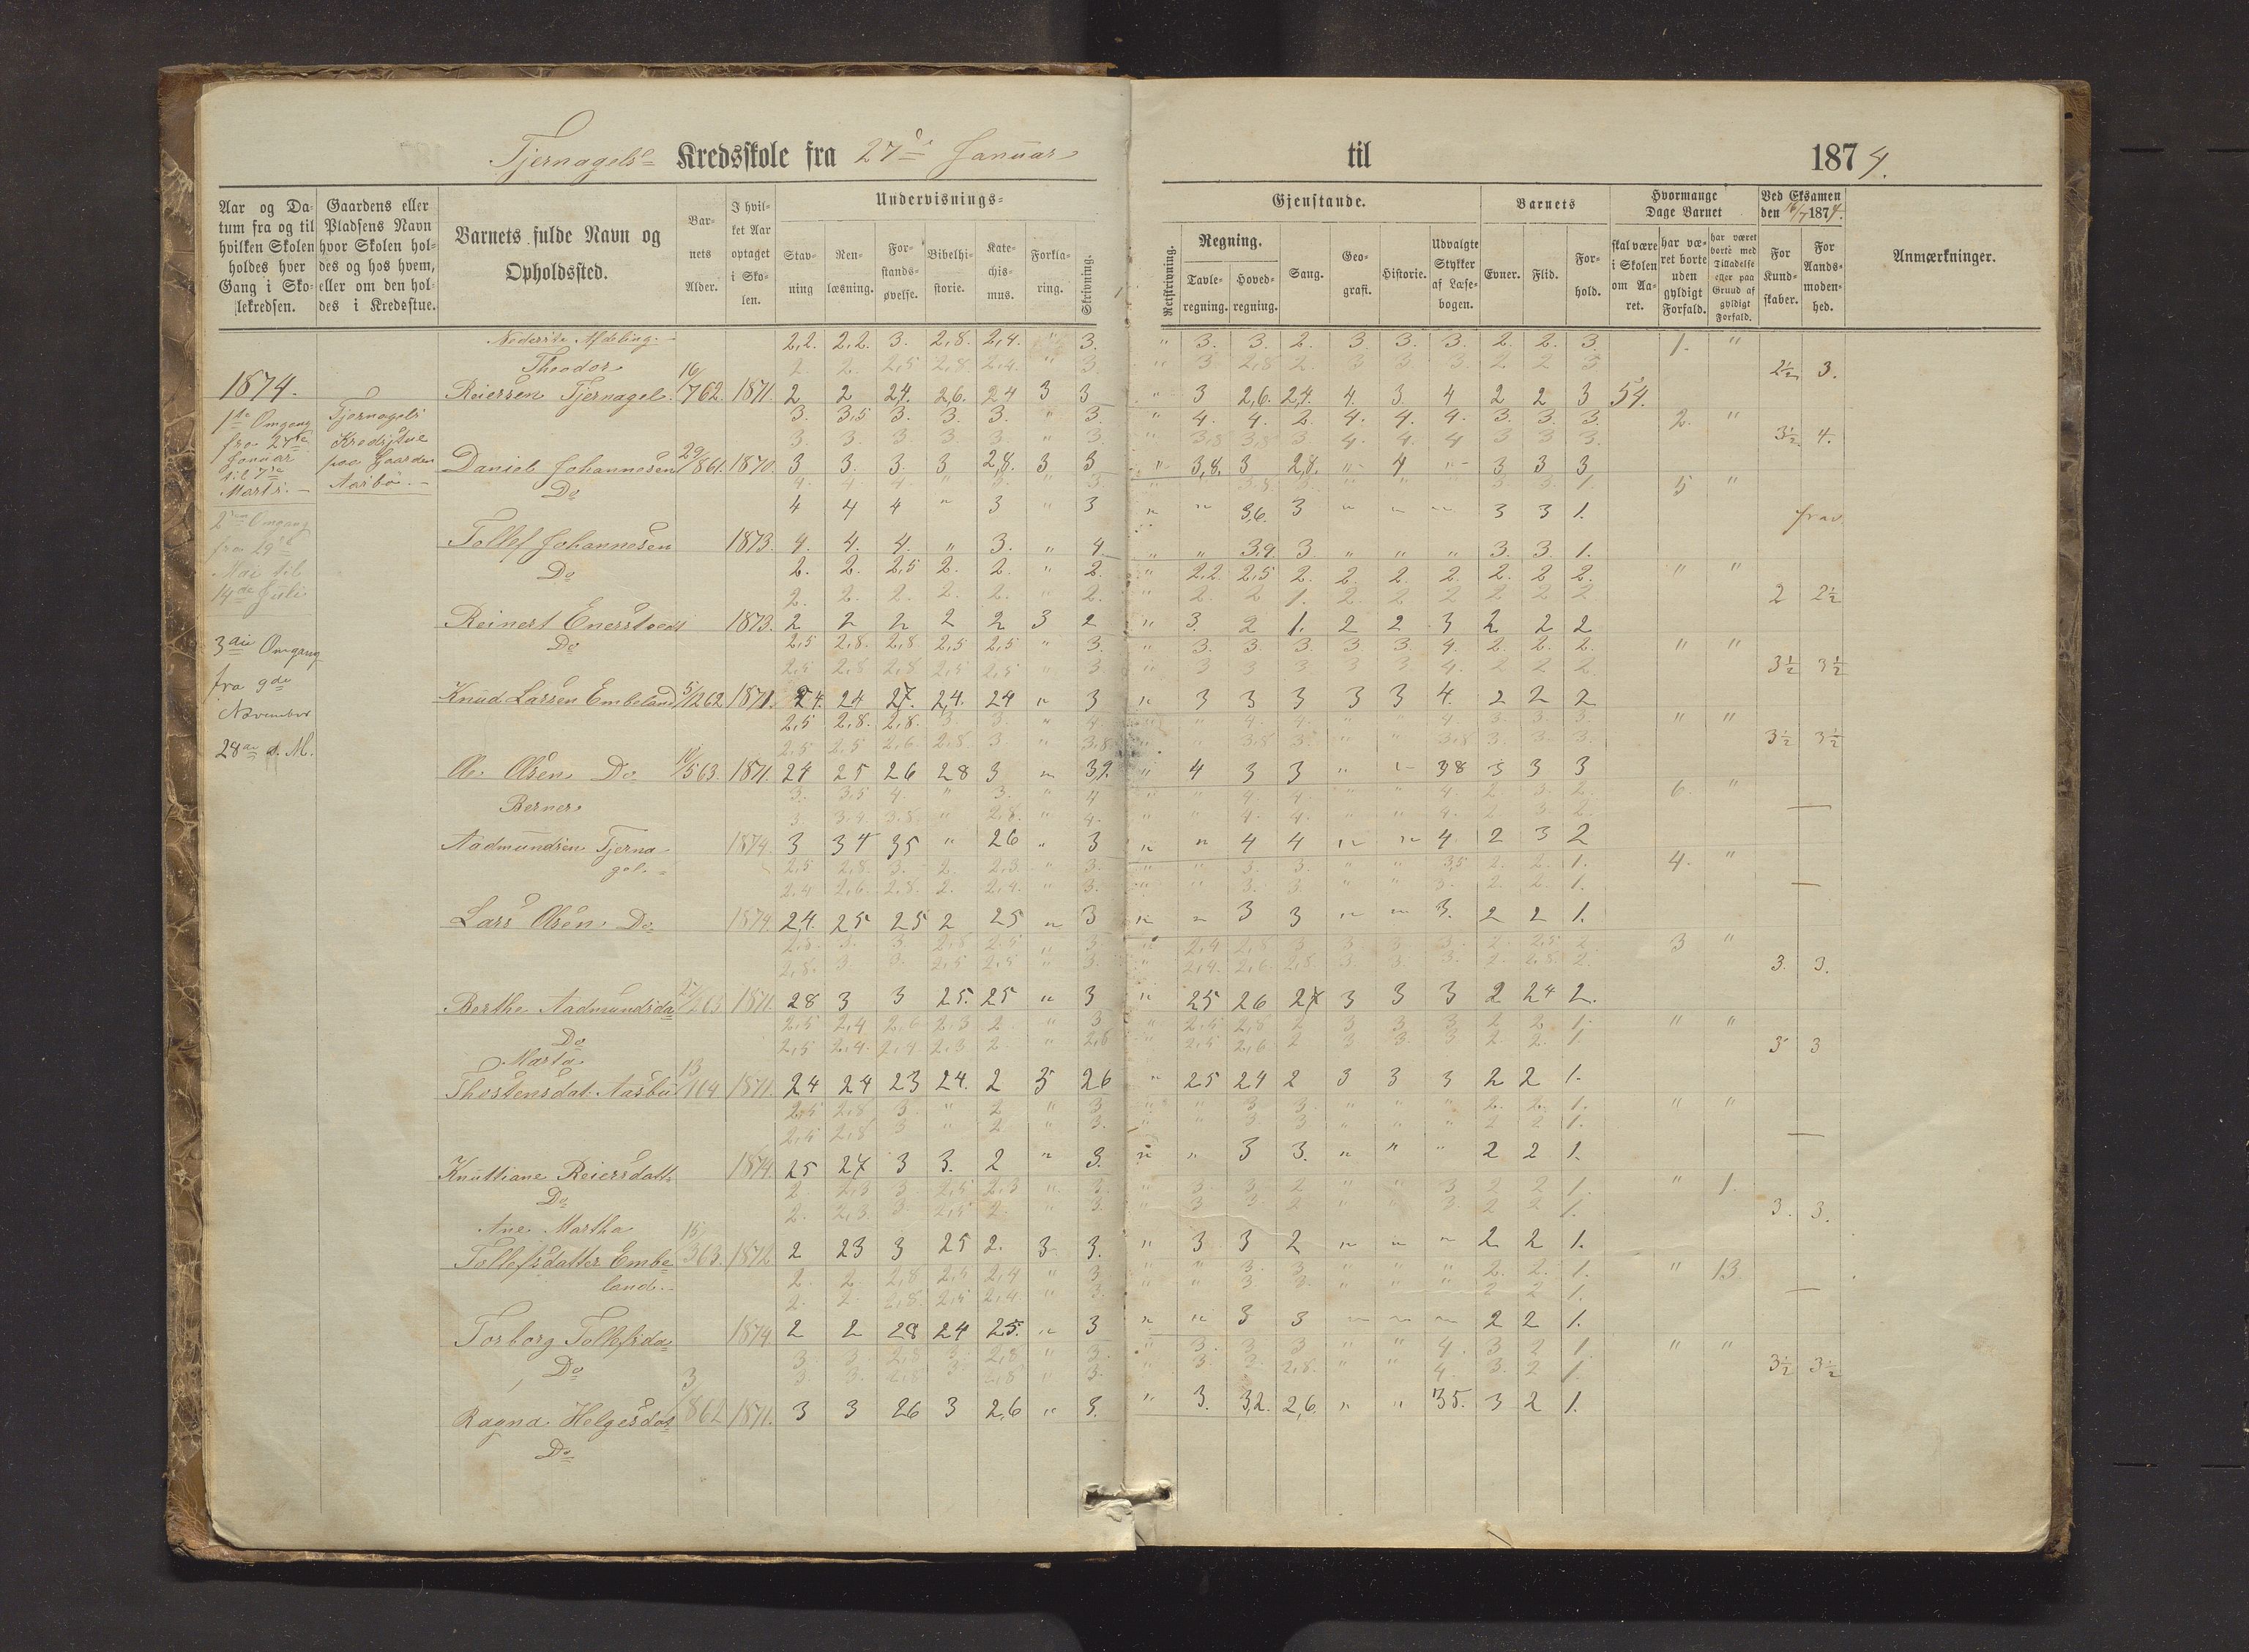 Tjernagels Kredsskole fra 27de Januar til 1874.
Aar og Da- tum fra og til hvilken Skolen holdes hver Gang i Sko- lekredsen.
Gaardens eller Pladsens Navn hvor Skolen hol- des og hos hvem, eller om den hol- des i Kredsstue.
Barnets fulde Navn og Opholdssted.
Bar- nets Alder.
I hvil- ket Aar optaget i Sko- len.
Undervisnings-
Stav- ning
Ren- læsning.
For- stands- øvelse.
Bibelhi- storie.
Kate- chis- mus.
Forkla- ring.
Skrivning.
Gjenstande.
Retskrivning.
Regning.
Tavle- regning.
Hoved- regning.
Sang.
Geo- grafi.
Historie.
Udvalgte Stykker af Læse- bogen.
Barnets
Evner.
Flid.
For- hold.
Hvormange Dage Barnet
skal være i Skolen om Aa- ret.
har væ- ret borte uden gyldigt Forfald.
har været borte med Tilladelse eller paa Grund af gyldigt Forfald.
Ved Eksamen den 16/7 1874.
For Kund- skaber.
For Aands- moden- hed.
Anmærkninger.
1874.
1ste Omgang
fra 27de
Januar
til 7de
Marts. -
Tjernagels
Kredsstue
paa Gaarden
Aasbø. -
2den Omgang
fra 29de
Mai til
14de Juli
3die Omgang
fra 9de
November
28de d. M.
Nederste Afdeling. -
2,2. 2,2. 3. 2,8. 2,4. " 3. " 3. 3. 2. 3. 3. 3. 2. 2. 3. 1. "
Theodor
2. 2. 2,5 2,8. 2,4. " 3. " 3. 2,8 2. 3 3 3. 2 2 3 2½ 3.
Reiersen Tjernagel. 16/762. 1871. 2 2 24. 2,6. 24 3 3 " 3 2,6. 2,4. 4. 3. 4 2 2 3 54.
3. 3,5 3. 3. 3. " 3. " 4. 4. 2. 4. 4. 4. 3. 3. 3. 2. "
3. 3. 3 3. 3. " 3. " 3,8 3,8 3. 4. 4. 4 3 3 3. 3½. 4.
Daniel Johannesen 29/861. 1870. 3 3. 3. 3 2,8. 3 3 " 3,8. 3 2,8. " 4 " 3 3 3
Do
4 4 4 " 3 " 3 " " 3,6. 3 " " " 3 3 1. frav.
Tollef Johannesen 1873. 4. 4. 4. " 3. " 4. " " 3,9. 3. " " " 3. 3. 1.
Do 2. 2. 2,5 2. 2. " 2. " 2,2. 2,5 2. 2. 2. 2. 2. 2 2. " "
2. 2. 2. 2. 2. " 2. " 2. 2 1. 2. 2 2 2 2 2 2 2½
Reinert Enerstvedt 1873. 2 2 2 2 2 3 2 " 3. 2 1. 2 2 3 2 2 2
Do 2,5 2,8. 2,8 2,5 2,5 " 3. " 3. 3. 3. 3. 3. 4. 2. 2. 2. " "
2,5 2,8 2,8 2,5 2,5 " 3 " 3 3 3 3 3. 4. 2 2 2. 3½ 3½
Knud Larsen Embeland 5/1262 1871. 24. 24 27. 2,4. 24 " 3 " 3 3 3 3 3 4. 2 2 2
2,5 2,8. 2,8. 3. 3. " 4. " 4. 4. " " 4. 3. 3. 3. " "
2,5 2,5 2,6. 2,8 3 " 3,8 " " 3,8 3. " " 3,8 3. 3. 3. 3½ 3½
Ole Olsen Do 1871. 24 25 26 28 3 " 39. " 4 3 3 " " 38 3 3 3
3. 3,5 4. " 3. " 4 " " 4. 4. " " 4. 2. 3. 2. 6. "
Berner
Aadmundsen Tjerna- 1874. 3 34 35 " 26 " 3 " " 4 4 " " 4. 2 3 2
gel. - 2,5 2,8. 3. 2. 2,3 " 3. " " 3. 3. " " 3,5 2. 2. 1. 4. "
2,4 2,6. 2,8. 2. 2,4. " 3. " " 3. 3. " " 3. 2. 2. 1.
Lars Olsen. Do 1874. 24. 25 25 2 25 " 3 " " 3 3 " " 3. 2 2 1.
3 "
2,8. 3 3. 2,5 2,5 " 3. " 2,4. 2,6. 2,8. 3 3. 3. 2. 2,8. 2. 3. 3.
Berthe Aadmundsda 1871. 28 3 3 25. 25 " 3 " 25 26 27 3 3 3 2 24 2.
2,5 2,4 2,6 2,3 2. " 3 " 2,5 2,8 2 3 3 3. 2 2. 1. " "
Do 2,5 2,4. 2,4. 2,3 2 " 2,6 " 2,5 2,6 2 3 3. 3 2. 2. 1. 3 3
Marta
Thostensdat. Aasbu 13/1164 1871. 24 24 23 24. 2 3 26 " 25 24 2 3 3 3 2 2 1.
2,5 2,8 3. " 2 " 3 " " 3 3. " " " 2. 2. 1. " "
2,5 2,8 3 " 2 " 3. " " 3. 3 " " " 2 2 1.
Knuttiane Reiersdatt. 1874. 25 27 3 3. 2 " 3. " " 3 3. " " " 2 2 1.
Do 2. 2,3 3. 2,5 2,3 " 3. " 3. 3. 2 " " 3 2 2 1. " 1.
Ane Martha 2. 2,3. 3. 2,5 2. " 3. " 3 3 2 " " 3. 2 2 1. 3. 3.
Tollefsdatter Embe- 15/363. 1872. 2 23 3 25 2. 3 3. " 3 3 2 " " " 2 2 1.
land. - 2. 2. 2,8 2,5 2,4 " 3 " " 3. 3 " " " 2. 2. 1. " 13
2. 2. 2,8. 2,5 2,4. " 3. " " 3. 3. " " " 2 2 1.
Torborg Tollefsda 1874 2 2 28 24 25. " 3 " " 3 3 " " " 2 2 1.
3. 3. 2,8 3. 2,8 " 3. " 3. 3 3 " " 4. 3 2 1. " "
Do 3. 3. 2,8 3. 2,8 " 3. " 3. 3. 2,8. " " 4. 3. 2 1. 3½ 3½
Ragna Helgesdat 3/862 1871. 3 3 26 3 2,6 " 3. " 3. 3,2. 2,6. " " 35. 3 2 1.
Do